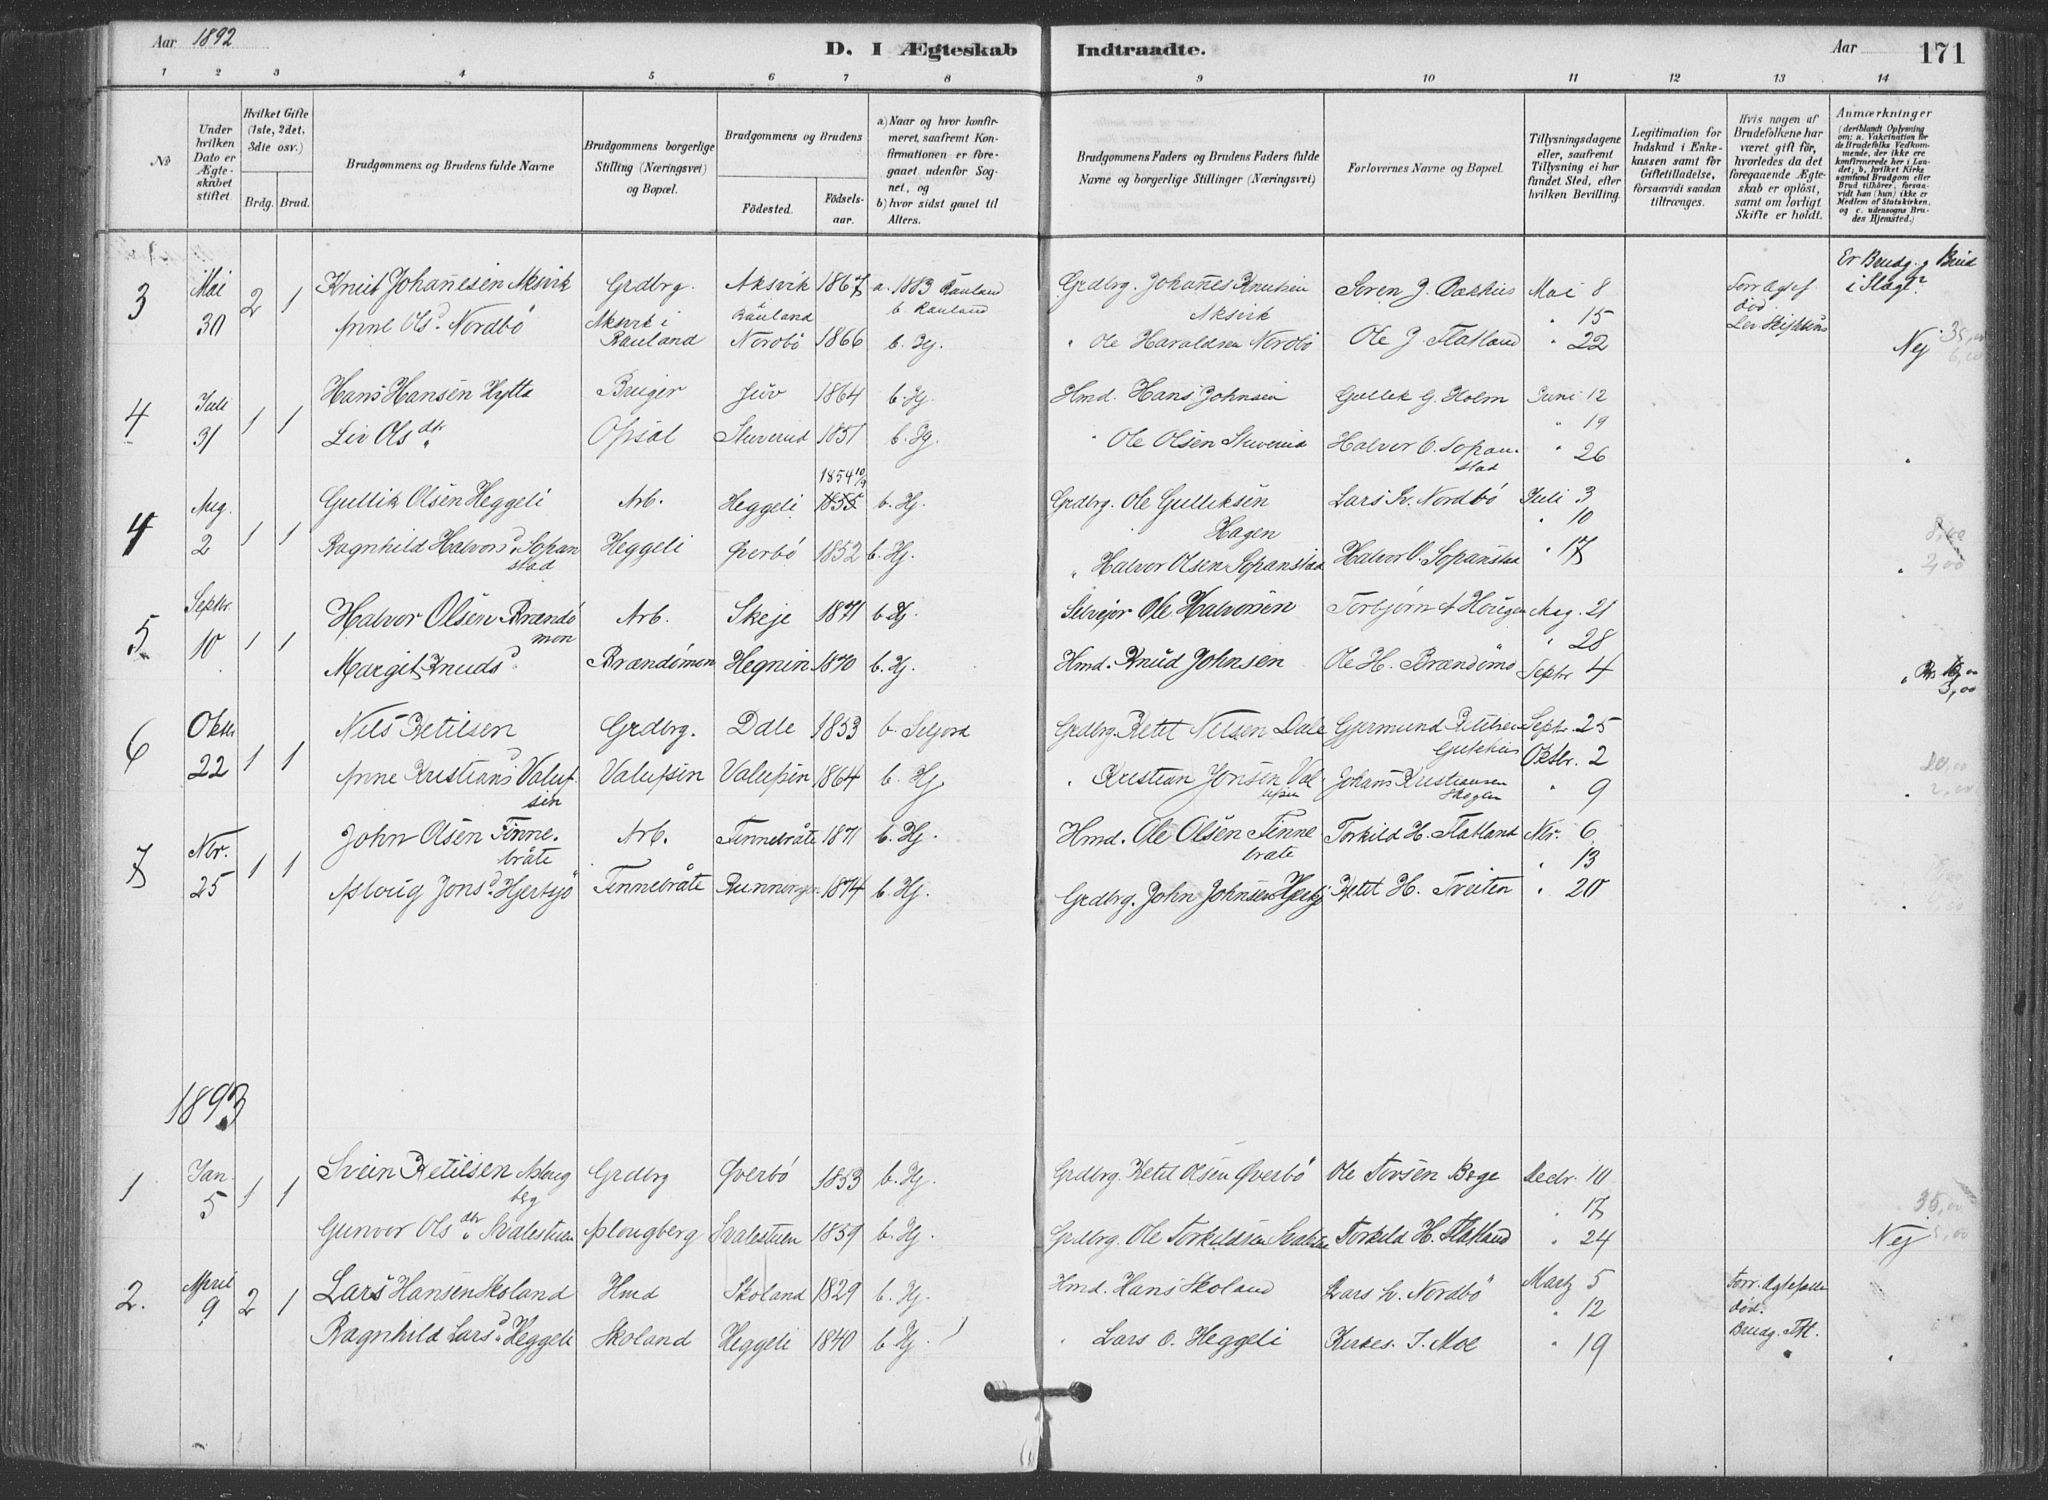 Aar 1892
D. I Ægteskab Indtraadte.
Aar
171
1 2 3 4 5 6 7 8 9 10 11 12 13 14
No
Under hvilken Dato er Ægteskabet stiftet.
Hvilket Gifte (1ste, 2det, 3die osv.)
Brdg. Brud.
Brudgommens og Brudens fulde Navne
Brudgommens borgerlige Stilling (Næringsvei) og Bopæl.
Brudgommens og Brudens
Fødested. Fødselsaar.
a) Naar og hvor konfirmeret, saafremt Konfirmationen er foregaaet udenfor Sognet, og
b) hvor sidst gaaet til Alters.
Brudgommens Faders og Brudens Faders fulde Navne og borgerlige Stillinger (Næringsvei)
Forlovernes Navne og Bopæl.
Tillysningsdagene eller, saafremt Tillysning ei har fundet Sted, efter hvilken Bevilling.
Legitimation for Indskud i Enkekassen samt for Giftetilladelse, forsaavidt saadan tiltrænges.
Hvis nogen af Brudefolkene har været gift før, hvorledes da det foregaaende Ægteskab er opløst, samt om lovligt Skifte er holdt.
Anmærkninger
(deriblandt Oplysning om: a. Vakcination for de Brudefolks Vedkommende, der ikke ere konfirmerede her i Landet; b. hvilket Kirkesamfund Brudgom eller Brud tilhører, forsaavidt han (hun) ikke er Medlem af Statskirken, og c. udensogns Brudes Hjemsted.)
3 Mai 30 2 1 Knut Johanesen Aksvik Grdbrg. Aksvik Rauland 1867 a. 1883 Rauland b. Rauland Grdbrg. Johanes Knutsen Aksvik Mai 8 Er Brudg. og Brud i Slægt?
Anne Olsd. Nordbö Aksvik i Rauland Nordbö 1866 b. Hj. " Ole Haraldsen Nordbö Ole J. Flatland " 15 " 22 død Nej
4 Juli 31 1 1 Hans Hansen Hytta Bruger Juv 1864 b. Hj. Hmd. Hans Johnsen Gullik G. Holm Juni 12
Liv Olsdtr " Opsal Skuverud 1851 b. Hj. " Ole Olsen Skuverud Halvor O. Sopanstad " 19 " 26 "
4 Aug. 2 1 1 Gullik Olsen Heggeli Arb. Heggeli 1854 10/9 1855 b. Hj. Grdbrg. Ole Gulliksen Hagen Lars H. Nordbö Juli 3 " 10
Ragnhild Halvorsd. Sopanstad Heggeli Øverbö 1852 b. Hj. " Halvor Olsen Sopanstad Halvor O. Sopanstad " 17 "
5 Septbr. 10 1 1 Halvor Olsen Brændemon Arb. Skeje 1871 b. Hj. Selvejer Ole Halvorsen Torbjørn A Hougen Aug. 21 " 28
Margit Knudsd. Brændemon Hegnin 1870 b. Hj. Hmd. Knud Johnsen Ole H. Brændemo Septbr 4 "
6 Oktbr 22 1 1 Nils Ketilsen Grdbrg. Dale 1853 b. Seljord Grdbrg. Ketil Nilsen Dale Gjermund Ketilsen Septbr. 25 Oktbr. 2
Anne Kristiansd. Valupsin Valupsin Valupsin 1864 b. Hj " Kristian Jonsen Valupsin Johans Kristiansen Skogen " 9 "
7 Nbr. 25 1 1 John Olsen Finnebråte Arb. Finnebråte 1871 b. Hj. Hmd. Ole Olsen Finnebråte Torkild H. Flatland Nbr. 6 " 13
Aslaug Jonsd. Hjertsjö Finnebråte 1874 b. Hj. Grdbrg. John Johnsen Ketil H. Tveiten " 20 "
1893
1 Jan. 5 1 1 Svein Ketilsen Aslougberg Grdbrg Øverbö 1853 b. Hj. Grdbrg. Ketil Olsen Øverbö Ole Torsen Bøge Decbr. 10 " 17
Gunvor Olsdtr. Svalestuen Aslougberg Svalestuen 1859 b. Hj. Grdbrg. Ole Torkildsen Torkild H. Flatland " 24 Nej
2. April 9 2 1 Lars Hansen Skoland Hmd Skoland 1829 b. Hj. Hmd. Hans Skoland Lars H. Nordbö Marts 5 " 12 Forr. Ægtefælle død.
Ragnhild Larsd. Heggeli Skoland Heggeli 1840 b. Hj. " Lars O. Heggeli Kirkes. T. Moe " 19 "